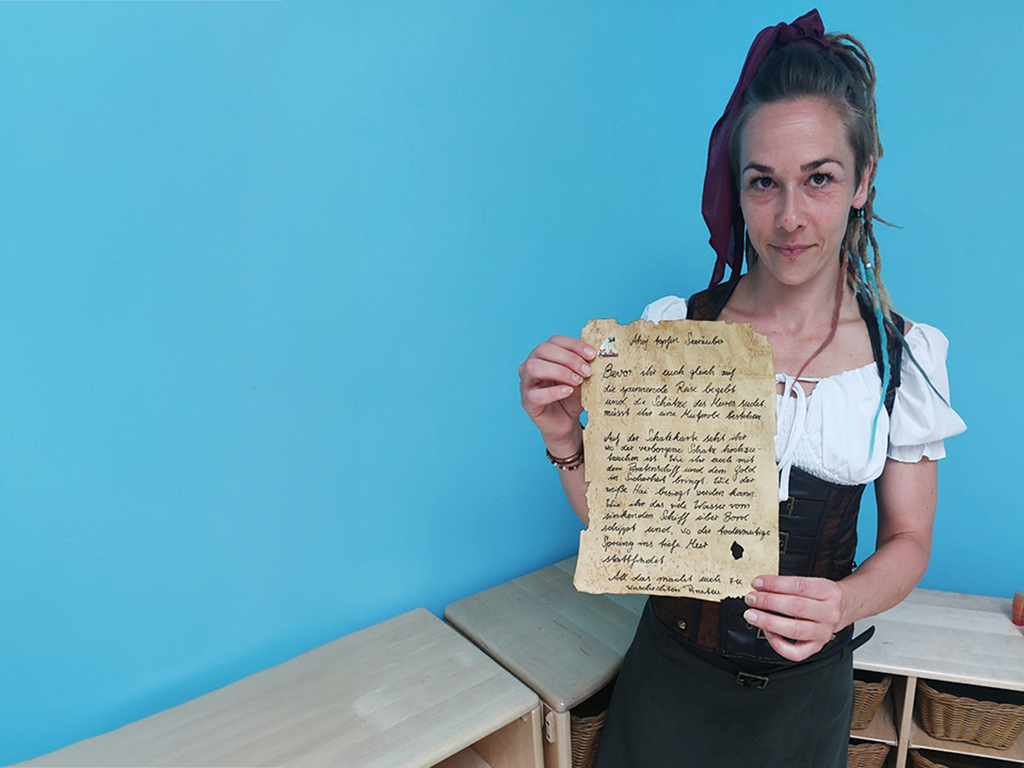 Ahoj tapfre Seeräuber
Bevor ihr euch gleich auf
die spannende Reise begebt
und die Schätze des Meeres sucht,
müsst ihr eine Mutprobe bestehen
Auf der Schatzkarte seht ihr
wo der verborgene Schatz hochzu-
tauchen ist. Wie ihr euch mit
dem Piratenschiff und dem Gold
in Sicherheit bringt. Wie der
weiße Hai besiegt werden kann.
Wie ihr das viele Wasser vom
sinkenden Schiff über Bord
schippt und, wo der todesmutige
Sprung ins tiefe Meer
stattfindet.
All das macht euch zu
waschechten Piraten